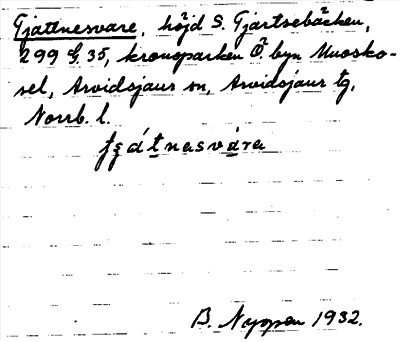 Gjattnesvare, höjd S. Gjärtsebäcken,
299 35, kronoparken Ö. byn Muosko-
sel, Arvidsjaur sn, Arvidsjaur tg,
Norrb. l.
B. Nyspen 1932.